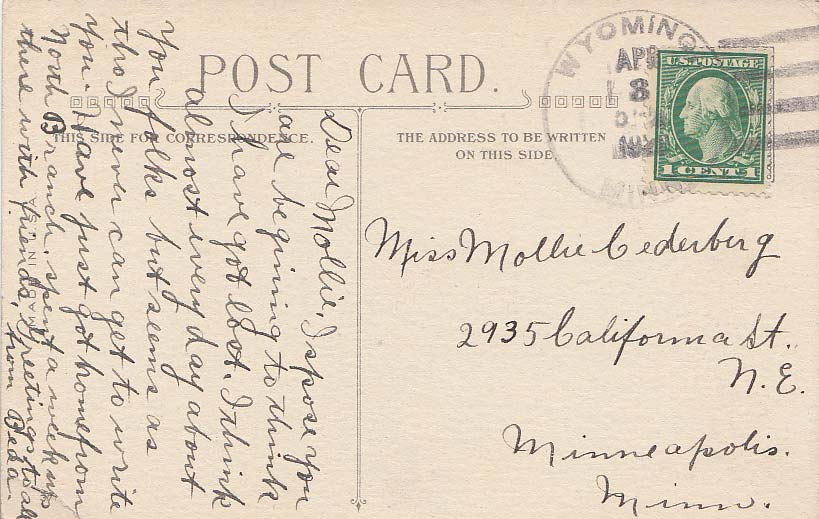 POST CARD.
THIS SIDE FOR CORRESPONDENCE.
THE ADDRESS TO BE WRITTEN
ON THIS SIDE.
WYOMING
APR
8
MINN
U.S. POSTAGE
1 CENT 1
Dear Mollie. I spose you
are begining to think
I have got lost. I think
almost every day about
you folks but seems as
tho I never can get to write
you. Have just got home from
North Branch. spent a week up
there with friends. Greetings to all
from Beda.
Miss Mollie Cederberg
2935 California St.
N.E.
Minneapolis.
Minn.